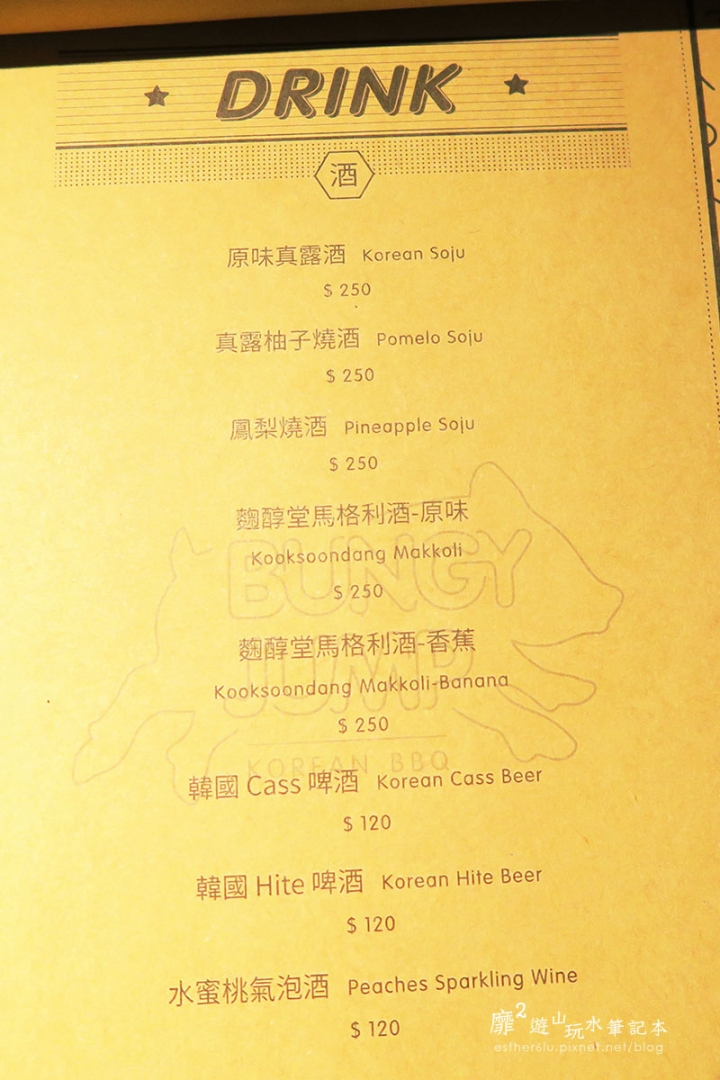 DRINK
酒
原味真露酒 Korean Soju
$ 250
真露柚子燒酒 Pomelo Soju
$ 250
鳳梨燒酒 Pineapple Soju
$ 250
麴醇堂馬格利酒-原味
Kooksoondang Makkoli
$ 250
麴醇堂馬格利酒-香蕉
Kooksoondang Makkoli-Banana
$ 250
BUNGY
JUMP
KOREAN BBQ
韓國 Cass 啤酒 Korean Cass Beer
$ 120
韓國 Hite 啤酒 Korean Hite Beer
$ 120
水蜜桃氣泡酒 Peaches Sparkling Wine
$ 120
靡2遊山玩水筆記本
esther6lu.pixnet.net/blog